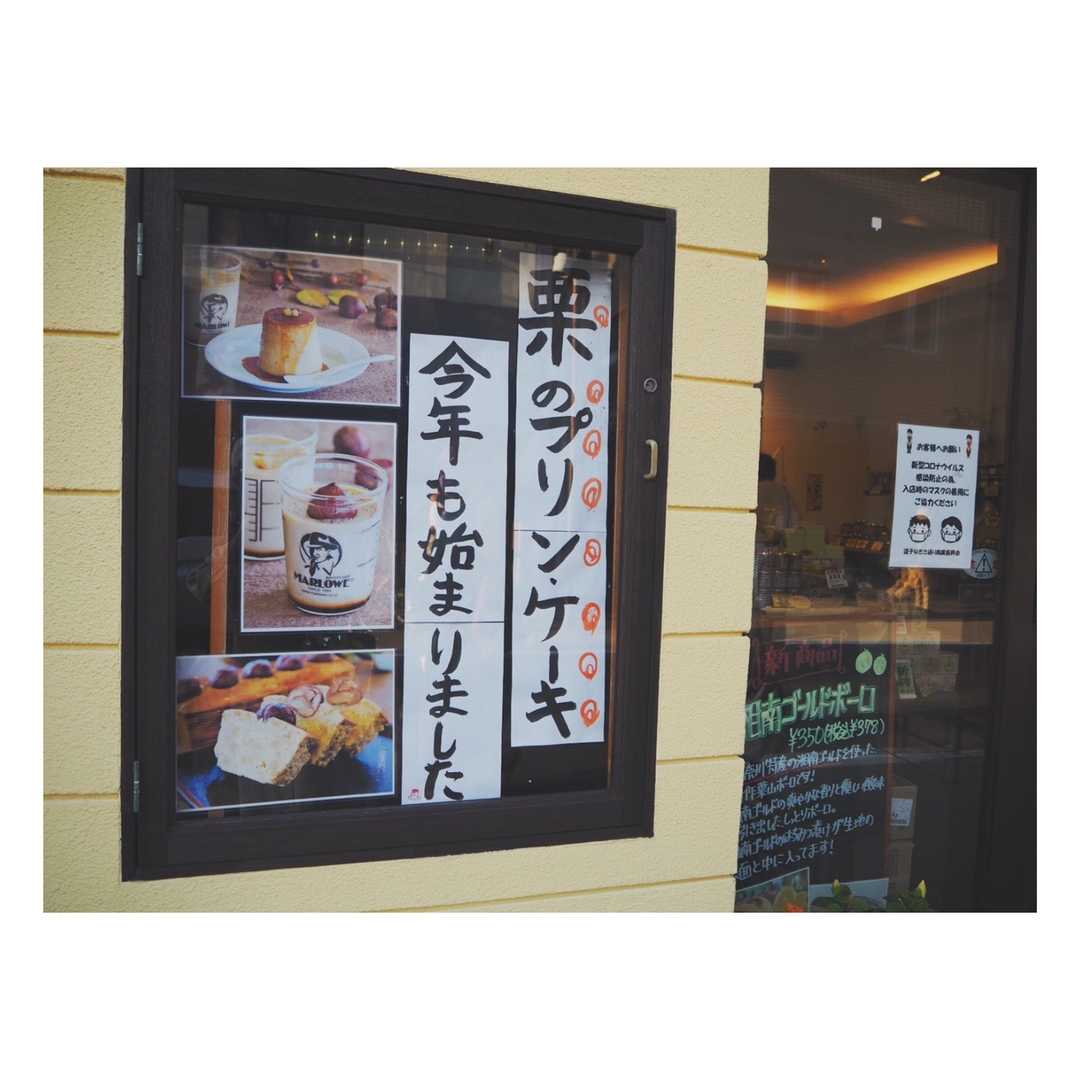 栗のプリン・ケーキ
今年も始まりました
MARLOWE
MARLOWE
お客様へお願い
新型コロナウイルス
感染防止の為、
入店時のマスクの着用に
ご協力ください
新商品!
湘南ゴールドボーロ
¥350(税込¥378)
奈川特産の湘南ゴールドを使った
作葉山ボーロです!
南ゴールドの爽やかな香りと優しい酸味
引き出したしっとりボーロ。
南ゴールドのはちみつ漬けが生地の
面と中に入ってます!